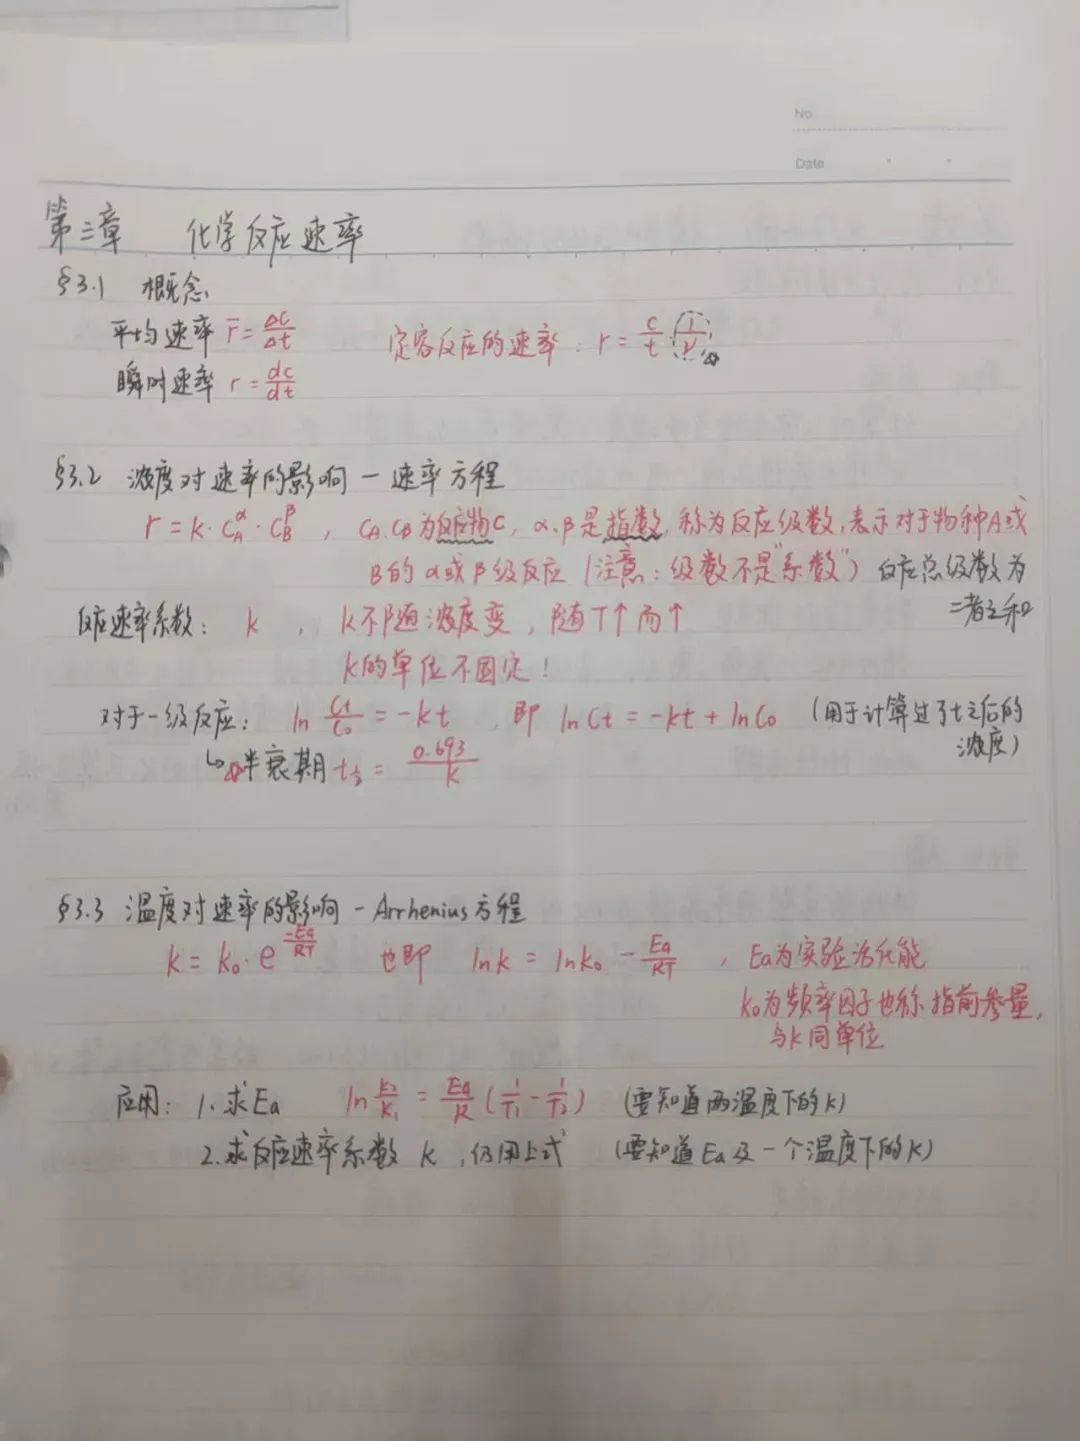 No.
Date
第三章 化学反应速率
§3.1 概念
平均速率 r̄ = Δc/Δt 定容反应的速率: r = c/t · 1/ν
瞬时速率 r = dc/dt
§3.2 浓度对速率的影响 — 速率方程
r = k·c_A^α·c_B^β , c_A.c_B为反应物c, α.β是指数,称为反应级数,表示对于物种A或
B的α或β级反应 (注意:级数不是“系数”) 反应总级数为
二者之和
反应速率系数: k , k不随浓度变,随T↑而↑
k的单位不固定!
对于一级反应: ln Ct/C₀ = -kt ,即 lnCt = -kt + lnC₀ (用于计算过了t之后的
浓度)
↳半衰期 t½ = 0.693/k
§3.3 温度对速率的影响 - Arrhenius方程
k = k₀·e^(-Ea/RT) 也即 lnk = lnk₀ - Ea/RT , Ea为实验活化能
k₀为频率因子也称指前参量,
与k同单位
应用: 1.求Ea ln k₂/k₁ = Ea/R (1/T₁ - 1/T₂) (要知道两温度下的k)
2.求反应速率系数 k ,仍用上式 (要知道Ea及一个温度下的k)